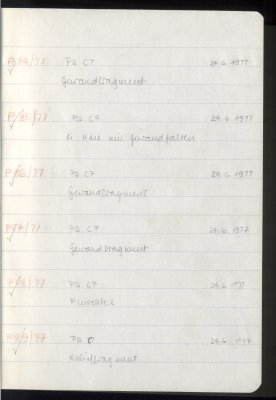 P 84/77 PQ C7 24.6.1977
Gewandfragment
P 85/77 PQ C7 24.6.1977
li Knie mit Gewandfalten
P 86/77 PQ C7 24.6.1977
Gewandfragment
P 87/77 PQ C7 24.6.1977
Gewandfragment
P 88/77 PQ C7 24.6.1977
P 89/77 PQ C 24.6.1977
Relieffragment